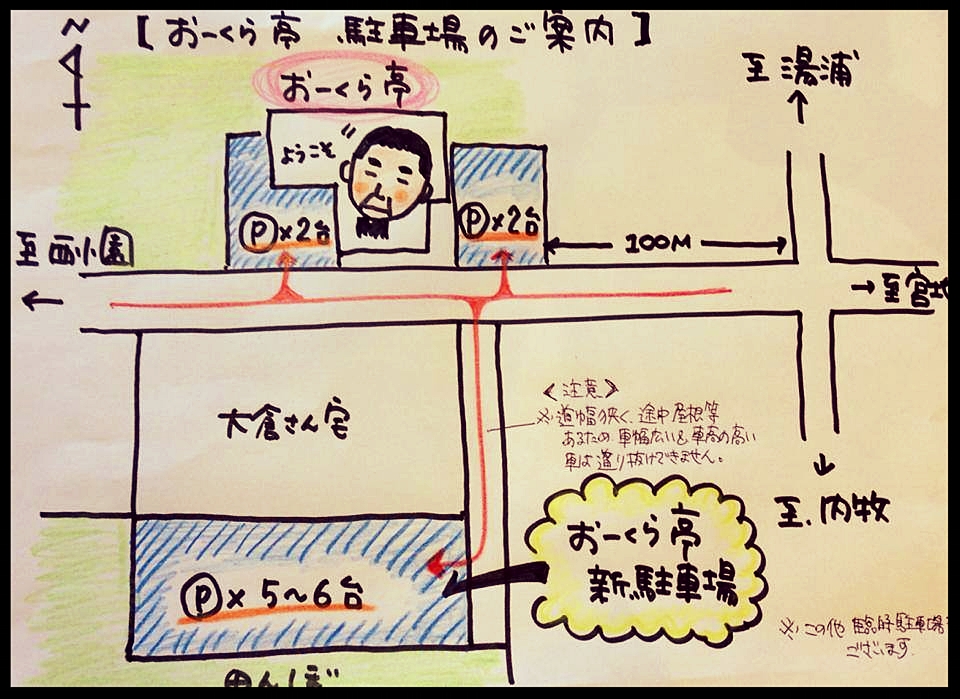 N
【おーくら亭 駐車場のご案内】
おーくら亭
至 湯浦
ようこそ
Ⓟ×2台
Ⓟ×2台
至 西小園
100M
至 宮地
大倉さん宅
《注意》
※道幅狭く、途中屋根等
あるため 車幅広い&車高の高い
車は通り抜けできません。
至.内牧
おーくら亭
新駐車場
Ⓟ× 5〜6台
※この他 臨時駐車場
ございます
田んぼ